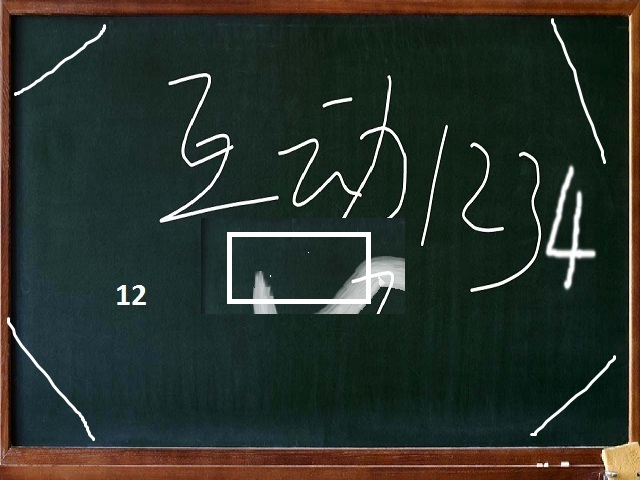 互动1234
12